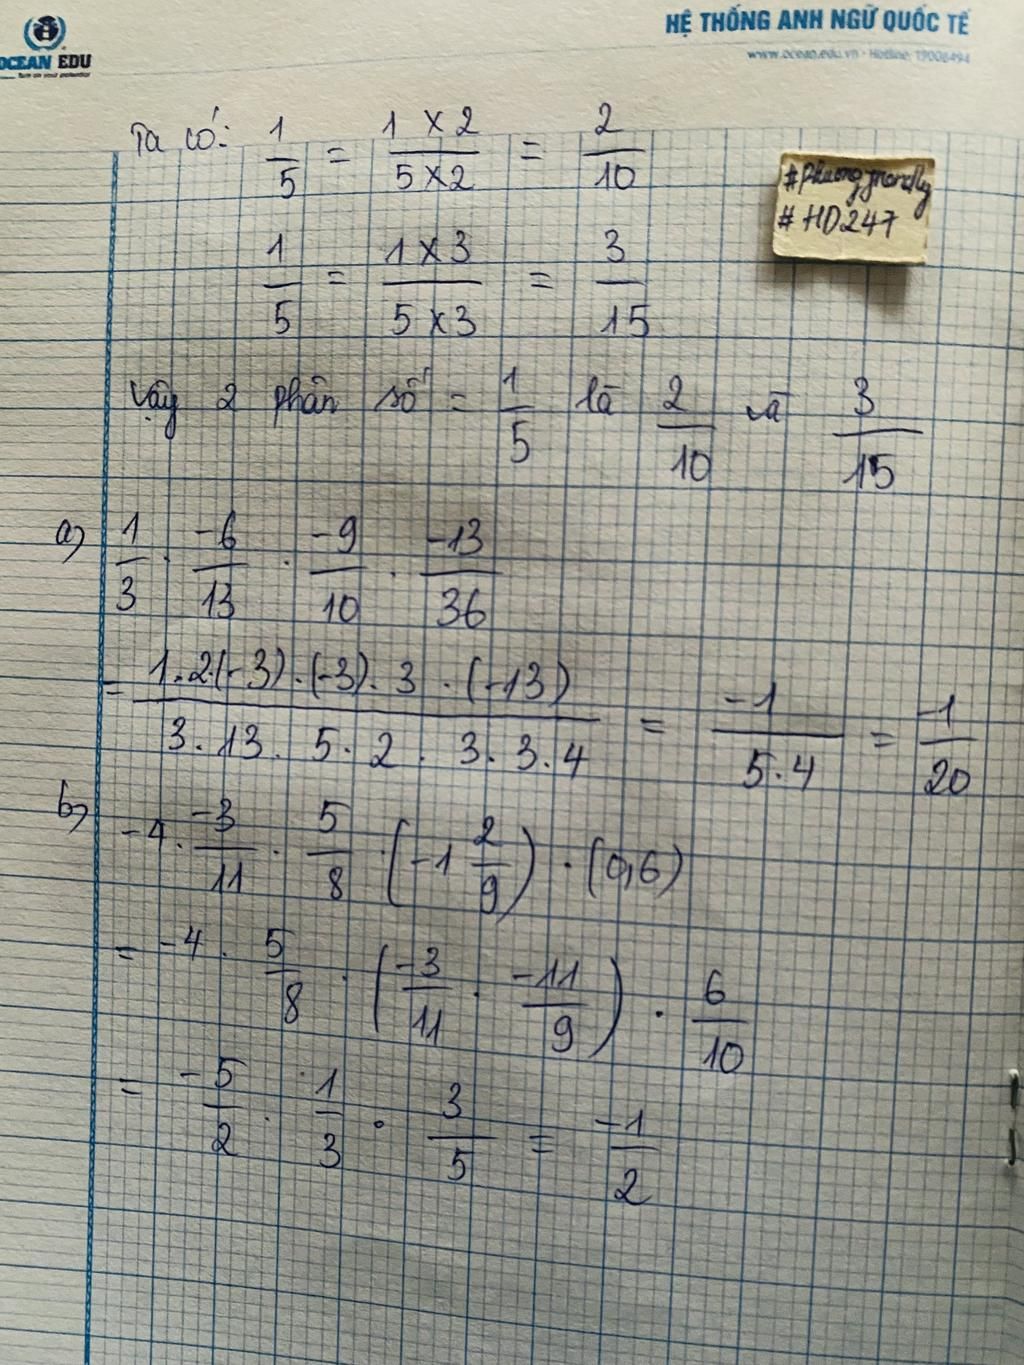 OCEAN EDU
HỆ THỐNG ANH NGỮ QUỐC TẾ
www.ocean.edu.vn - Hotline: 19006494
Ta có: 1/5 = 1 × 2 / 5 × 2 = 2/10
#HD247
1/5 = 1 × 3 / 5 × 3 = 3/15
Vậy 2 phân số = 1/5 là 2/10 và 3/15
a) 1/3 . -6/13 . -9/10 . -13/36
= 1.2.(-3).(-3).3.(-13) / 3.13.5.2.3.3.4 = -1 / 5.4 = -1/20
b) -4 . -3/11 . 5/8 . (-1 2/9) . (0,6)
= -4 . 5/8 . (-3/11 . -11/9) . 6/10
= -5/2 . 1/3 . 3/5 = -1/2